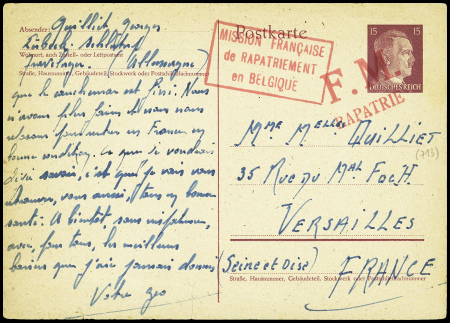 Absender: Quilliet Georges
Lübeck - Schlutup
Wohnort, auch Zustell- oder Leitpostamt
(Allemagne)
Straße, Hausnummer, Gebäudeteil, Stockwerk oder Postschließfachnummer
que le cauchemar est fini. Nous
n'avons plus faim et nous nous
laissons pour rentrer en France en
bonne condition. Ce que je voudrais
savoir, c'est que je vais vous
retrouver, vous aussi, tous en bonne
santé. A bientôt, sans
avec, pour tous, les meilleurs
baisers que j'aie jamais donnés
Votre geo
Postkarte
MISSION FRANÇAISE
de RAPATRIEMENT
en BELGIQUE
F.M
RAPATRIE
15 15
DEUTSCHES REICH
Mme Melle QUILLIET
(713)
35 Rue du Mal Foch
VERSAILLES
(Seine et Oise)
FRANCE
Straße, Hausnummer, Gebäudeteil, Stockwerk oder Postschließfachnummer